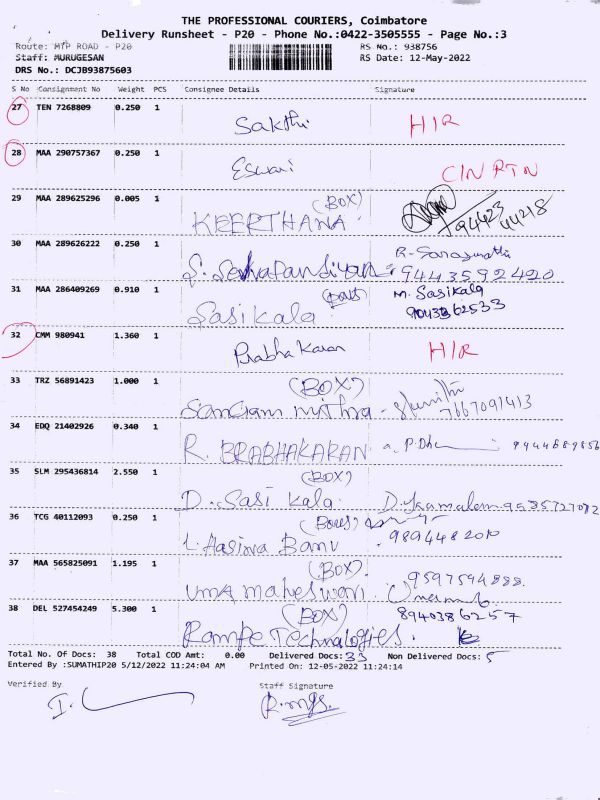 THE PROFESSIONAL COURIERS, Coimbatore
Delivery Runsheet - P20 - Phone No.:0422-3505555 - Page No.:3
Route: MTP ROAD - P20 RS No.: 938756
Staff: MURUGESAN RS Date: 12-May-2022
DRS No.: DCJB93875603
S No Consignment No Weight PCS Consignee Details Signature
27 TEN 7268809 0.250 1
Sakthi H/R
28 MAA 290757367 0.250 1
Eswari C/N RTN
29 MAA 289625296 0.005 1 (BOX)
KEERTHANA 94423 44218
30 MAA 289626222 0.250 1 R. Saraswathi
9443592420
31 MAA 286409269 0.910 1 M. Sasikala
Sasikala 9043362533
32 CMM 980941 1.360 1 Prabhakaran H/R
33 TRZ 56891423 1.000 1 (BOX)
mithra - 7667091413
34 EDQ 21402926 0.340 1
R. PRABHAKARAN
35 SLM 295436814 2.550 1 (BOX)
D. Sasi Kala.
36 TCG 40112093 0.250 1
Hasina Banu
37 MAA 565825091 1.195 1 (BOX) 9597594888.
Uma Maheswari
38 DEL 527454249 5.300 1 (BOX) 8940386257
Technologies.
Total No. Of Docs: 38 Total COD Amt: 0.00 Delivered Docs: 33 Non Delivered Docs: 5
Entered By :SUMATHIP20 5/12/2022 11:24:04 AM Printed On: 12-05-2022 11:24:14
Verified By Staff Signature